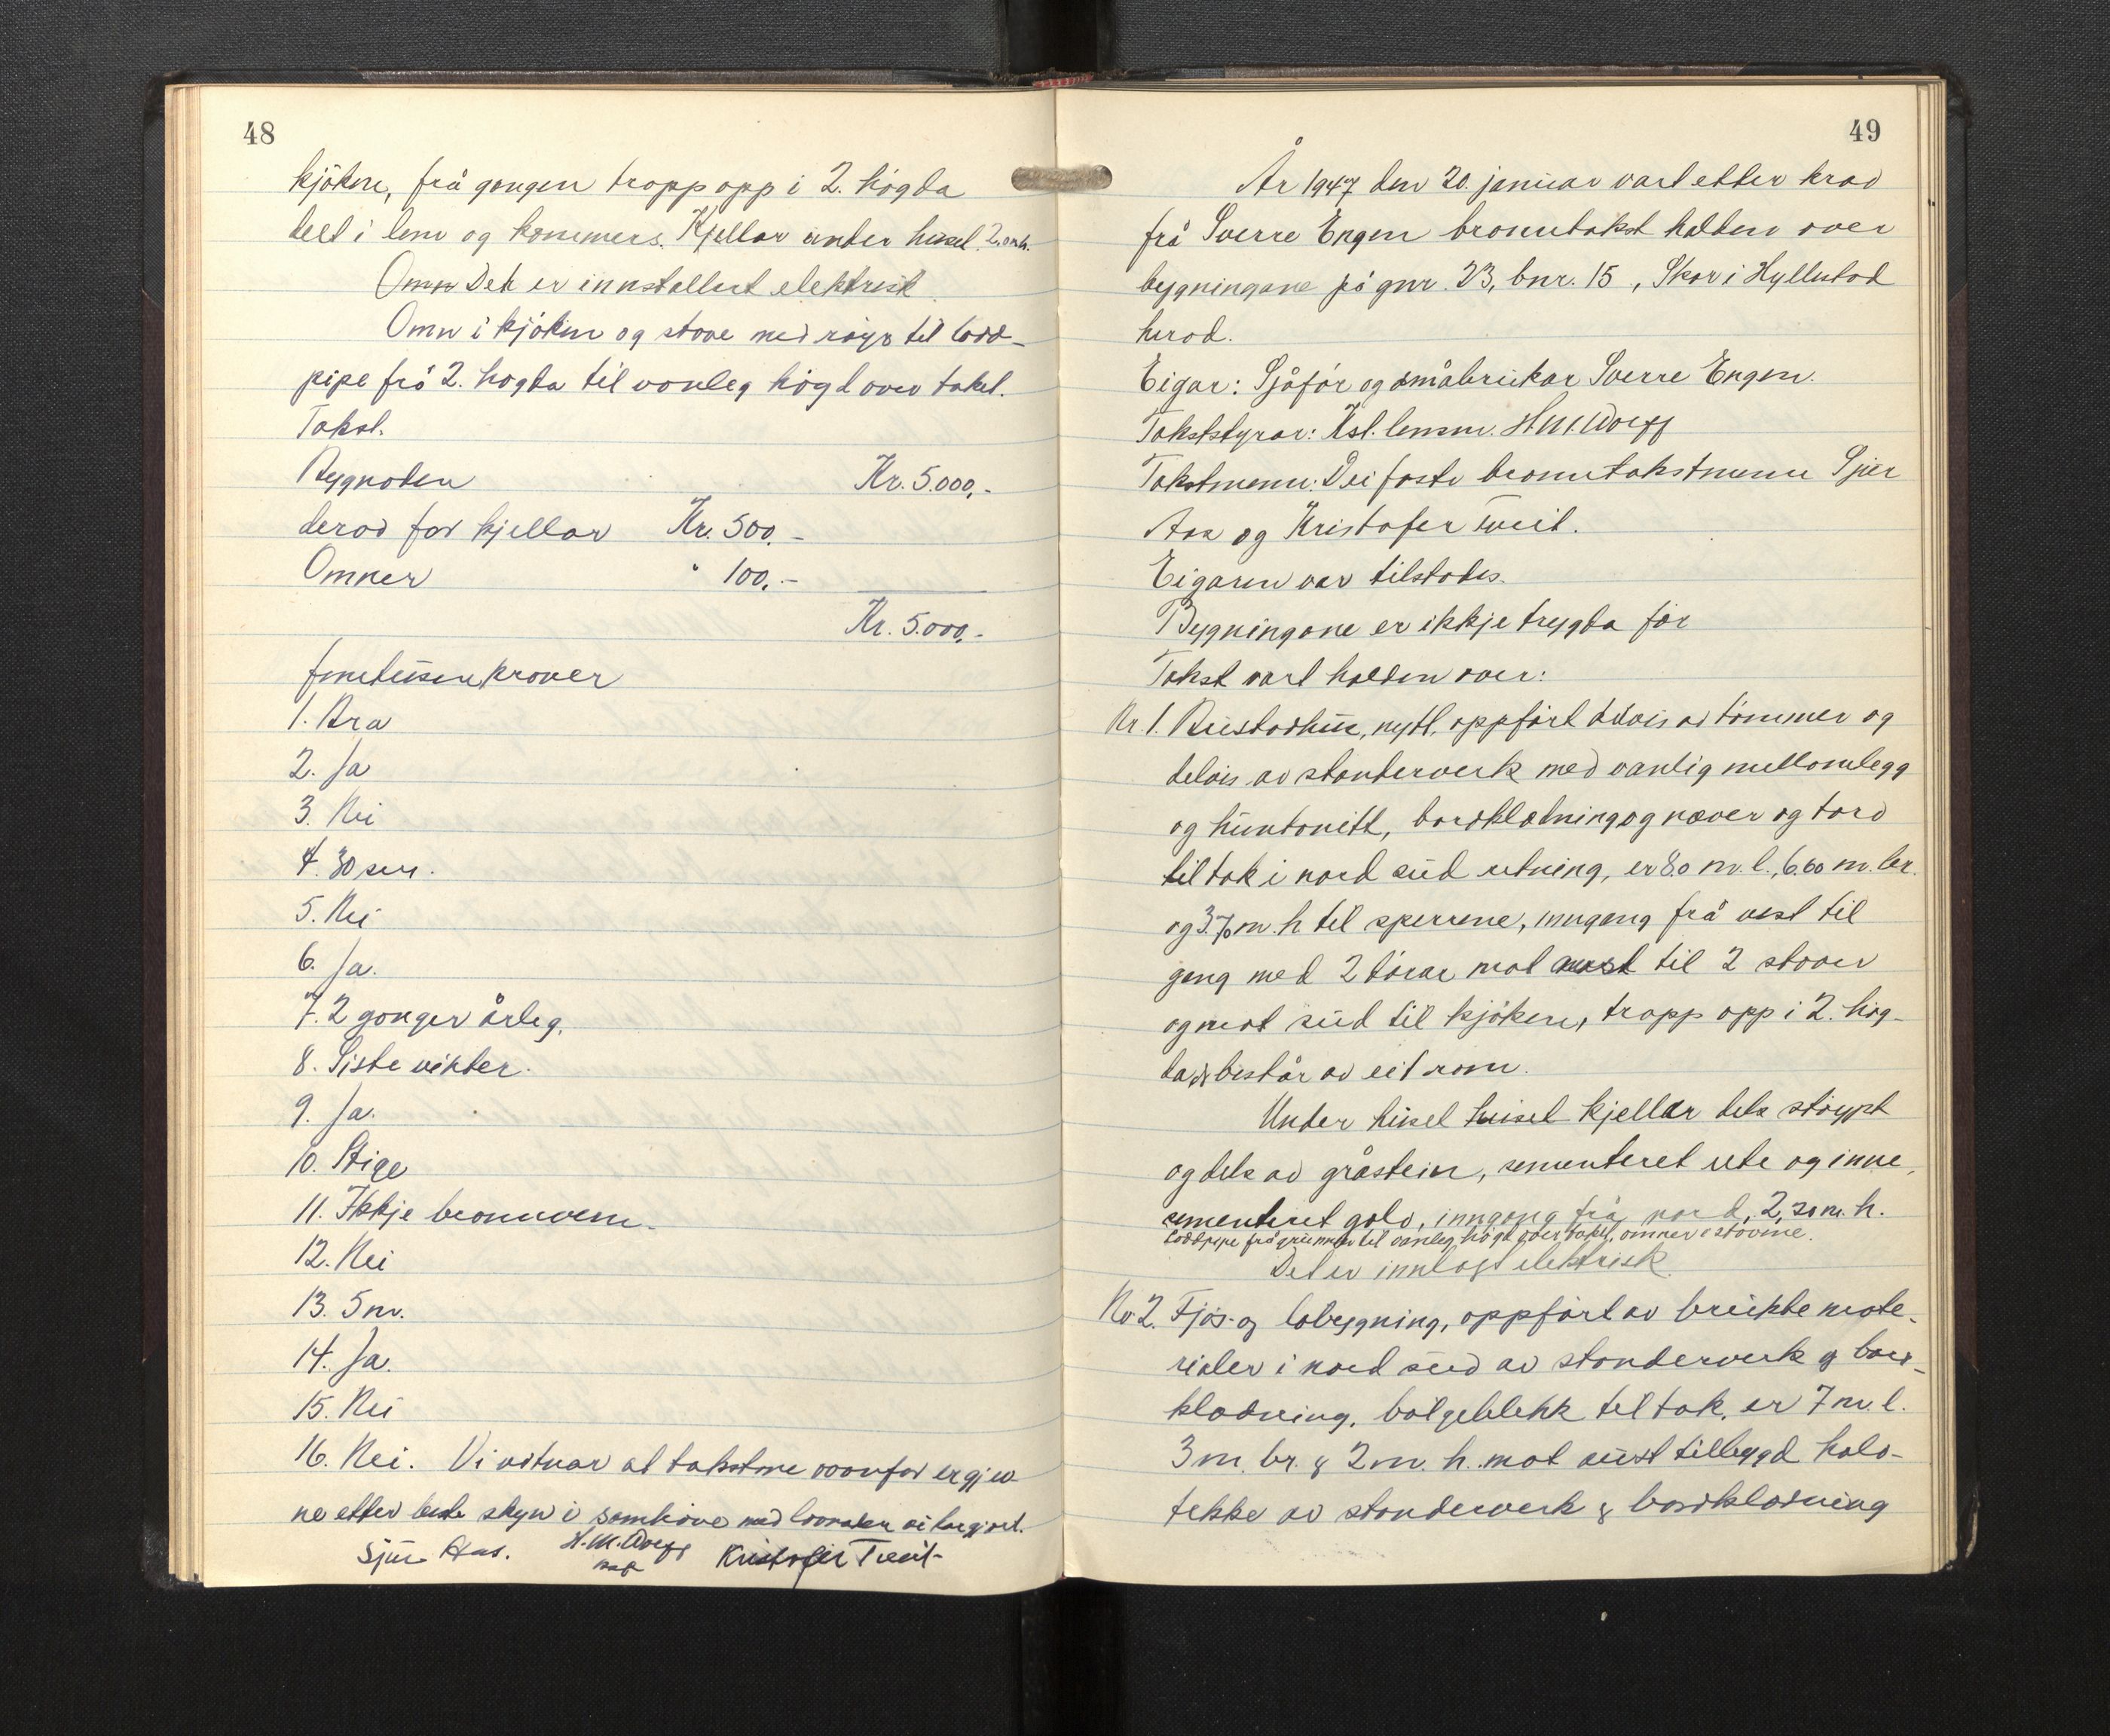 48
kjøken, frå gongen tropp opp i 2. høgda
delt i lem og kommers. Kjellar under huset. 2,0 m h.
Omn Det er innstallert elektrisk
Omn i kjøken og stove med røyr til lodd-
pipe frå 2. høgda til vonleg høgd over taket.
Takst.
Bygnoden Kr. 5.000,-
derav for kjellar Kr. 500,-
Omner " 100,-
Kr. 5.000,-
1. Bra
2. Ja
3. Nei
4. 30 sm.
5. Nei
6. Ja.
7. 2 gonger årleg.
8. Siste vinter.
9. Ja.
10. Stige
11. Ikkje bronnvern.
12. Nei
13. 5 m.
14. Ja.
15. Nei
16. Nei. Vi vitnar at takstene ovanfor er gjev-
ne etter beste skyn i samhøve med
Sjur Aas. H.M. Kristofer Tveit
49
År 1947 den 20. januar vart etter krav
frå Sverre Engen branntakst halden over
bygningane på gnr. 23, bnr. 15, Skor i Hyllestad
herad.
Eigar: Sjåfør og småbrukar Sverre Engen.
Takststyrar: Kst. lensm. H.M.
Takstmenn: Dei faste branntakstmenn Sjur
Aas og Kristofer Tveit.
Eigaren var tilstades.
Bygningane er ikkje trygda før
Takst vart halden over:
Nr. 1. Bustadhus, nytt, oppført delvis av tømmer og
delvis av standerverk med vanlig mellomlegg
og huntonitt, bordkledning og never og torv
til tak i nord sud retning, er 8.0 m. l., 6.60 m. br.
og 3.70 m. h til sperrene, inngang frå vest til
gang med 2 dørar mot aust til 2 stover
og mot sud til kjøken, tropp opp i 2. høg-
da, består av eit rom.
Under huset huset kjellar dels støypt
og dels av gråstein, sementeret ute og inne,
sementeret golv, inngong frå nord, 2,20 m. h.
Loddpipe frå grunnen til vanleg høgd over taket, omner i stovene.
Det er innlagt elektrisk
Nr 2. Fjøs- og løbygning, oppført av brukte mate-
rialer i nord sud av standerverk og bord-
kledning, bølgeblekk til tak, er 7 m. l.
3 m. br. & 2 m. h. mot aust tilbygd halv-
tekke av standerverk & bordkledning